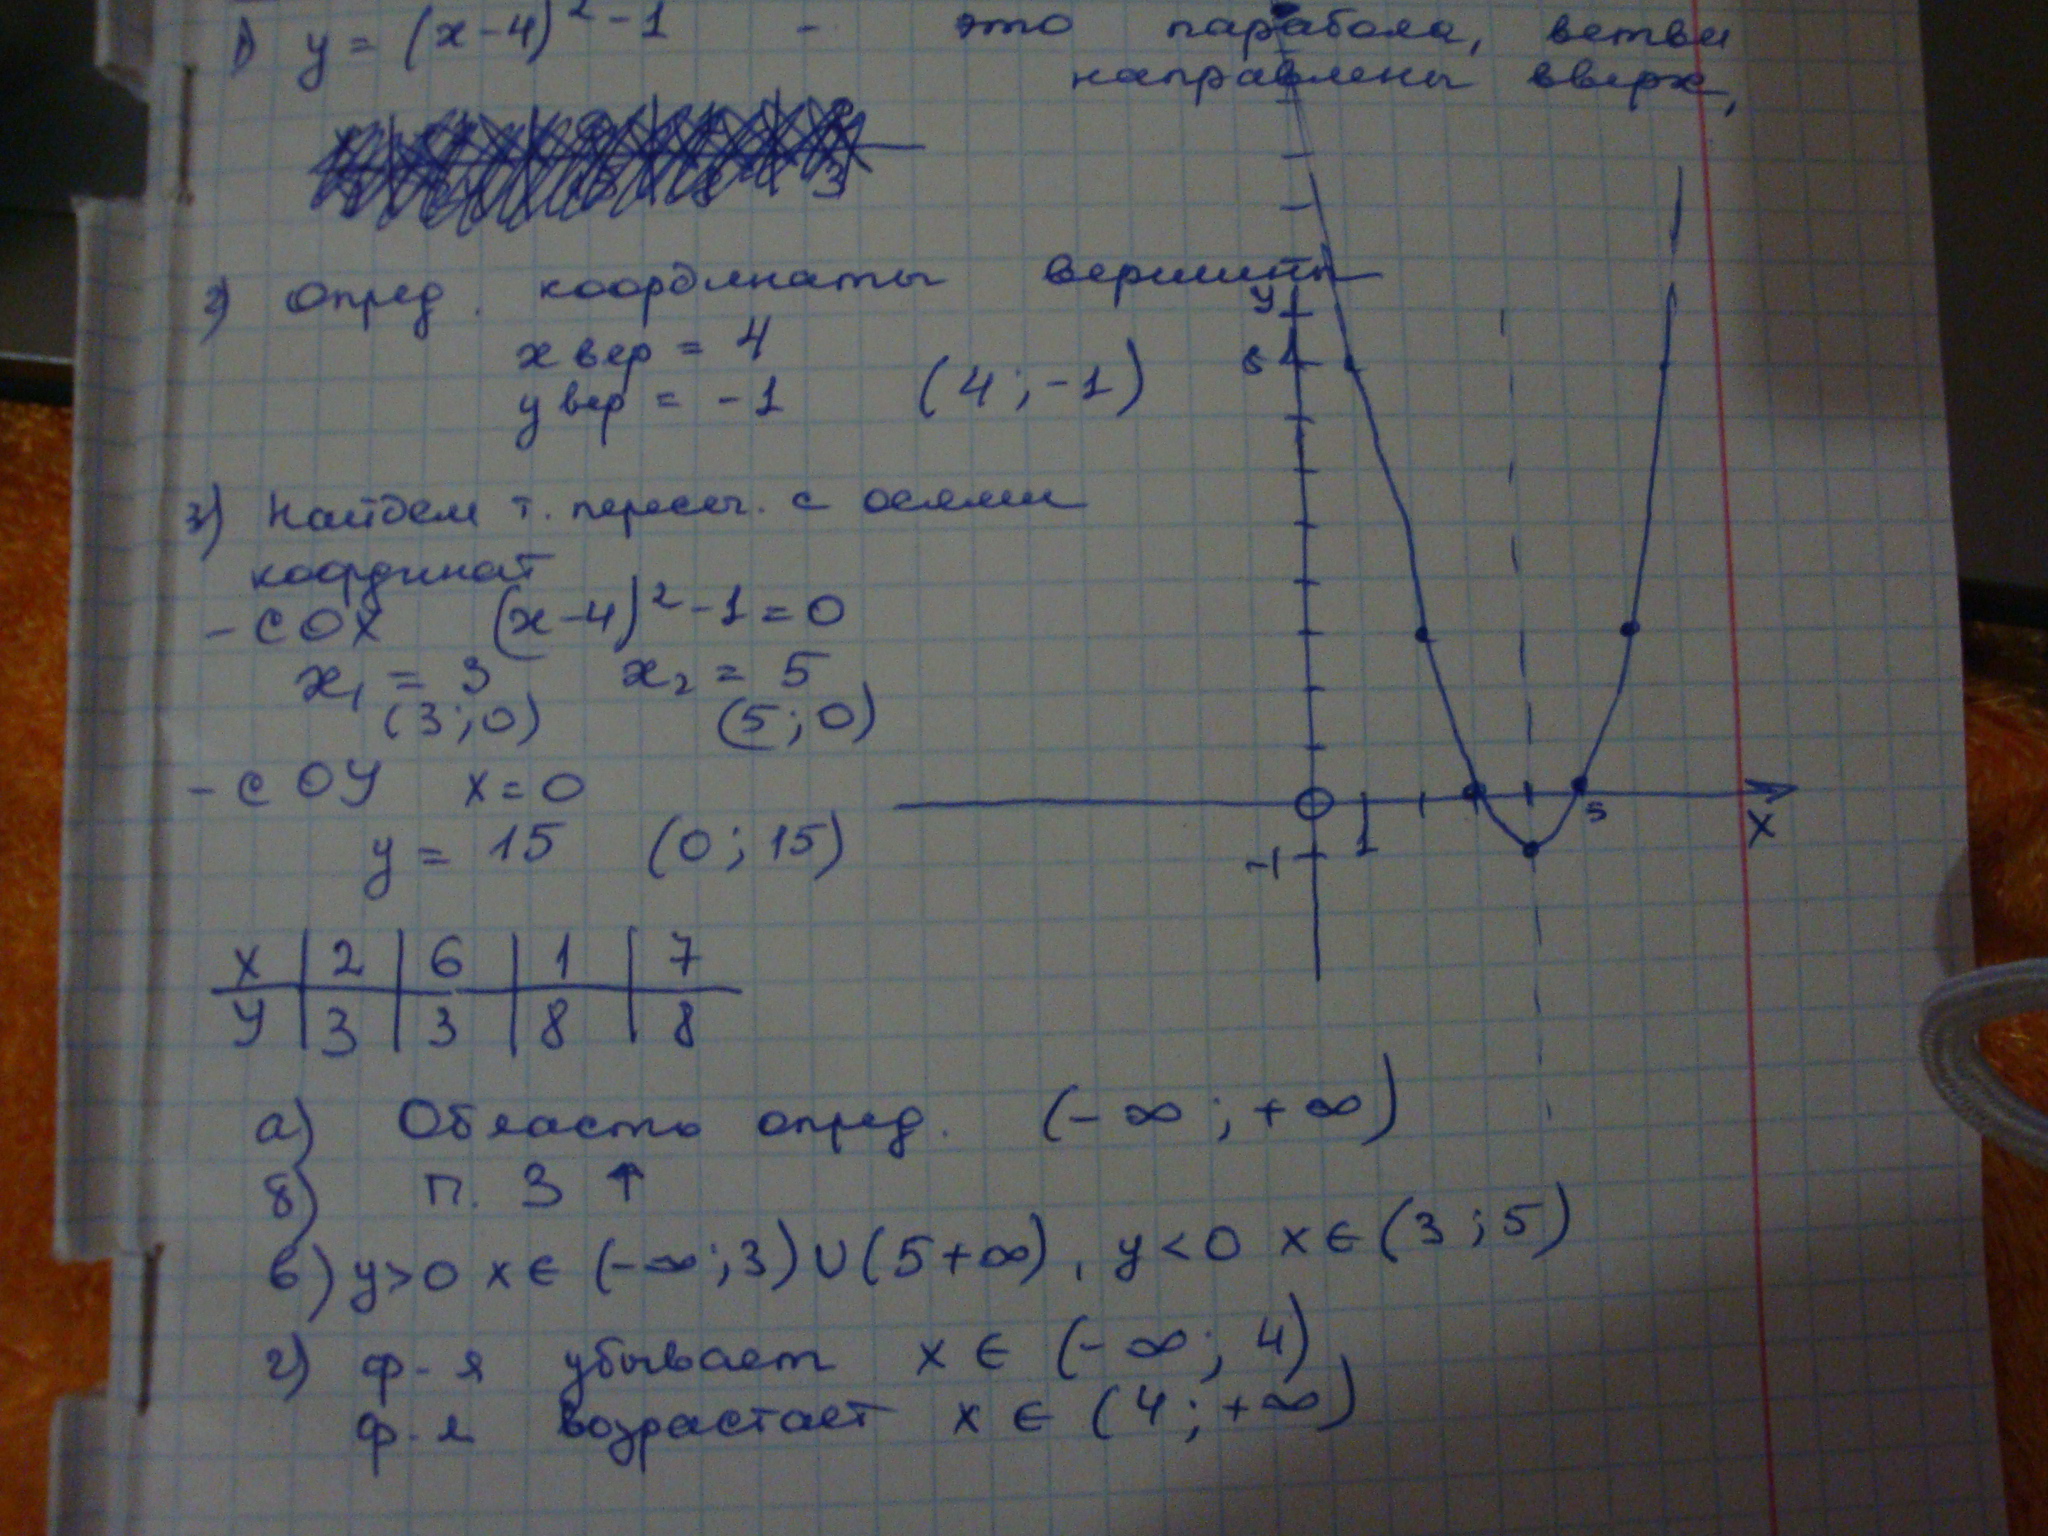 1) y = (x-4)² - 1 - это парабола, ветви
направлены вверх,
2) Опред. координаты вершины
x вер = 4
y вер = -1 (4 ; -1)
3) Найдем т. пересеч. с осями
координат
- с OX (x-4)² - 1 = 0
x₁ = 3 x₂ = 5
(3 ; 0) (5 ; 0)
- с OY x = 0
y = 15 (0 ; 15)
x | 2 | 6 | 1 | 7
y | 3 | 3 | 8 | 8
а) Область опред. (-∞ ; +∞)
б) п. 3 ↑
в) y>0 x ∈ (-∞ ; 3) ∪ (5 +∞), y < 0 x ∈ (3 ; 5)
г) ф-я убывает x ∈ (-∞ ; 4)
ф-я возрастает x ∈ (4 ; +∞)
y
8
0
1
5
x
-1